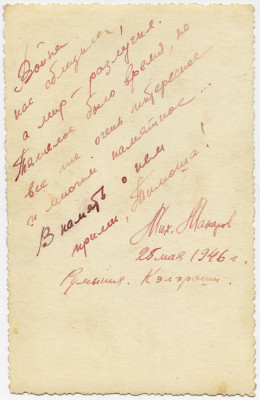 Война
нас сблизила,
а мир - разлучил.
Тяжелое было время, но
все же очень интересное
и многим памятное...
В память о нем
прими, Тимоша!
Мих. Макаров
25 мая 1946 г.
Румыния. Кэлэраши.